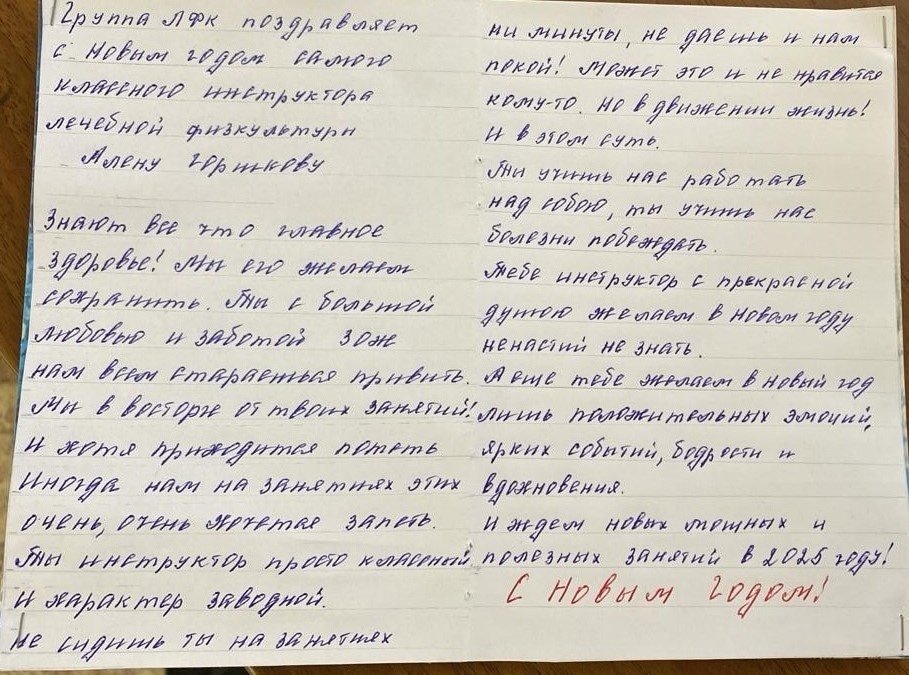 Группа ЛФК поздравляет
с Новым годом самого
классного инструктора
лечебной физкультуры
Алену Горшкову
Знают все что главное
здоровье! Мы его желаем
сохранить. Ты с большой
любовью и заботой ЗОЖ
нам всем стараешься привить.
Мы в восторге от твоих занятий!
и хотя приходится потеть
Иногда нам на занятиях этих
очень, очень хочется запеть.
Ты инструктор просто классный
и характер заводной.
не сидишь ты на занятиях
ни минуты, не даешь и нам
покой! Может это и не нравится
кому-то. Но в движении жизнь!
И в этом суть.
Ты учишь нас работать
над собою, ты учишь нас
болезни побеждать.
Тебе инструктор с прекрасной
душою желаем в новом году
ненастий не знать.
А еще тебе желаем в новый год
лишь положительных эмоций,
ярких событий, бодрости и
вдохновения.
И ждем новых мощных и
полезных занятий в 2025 году!
С Новым Годом!